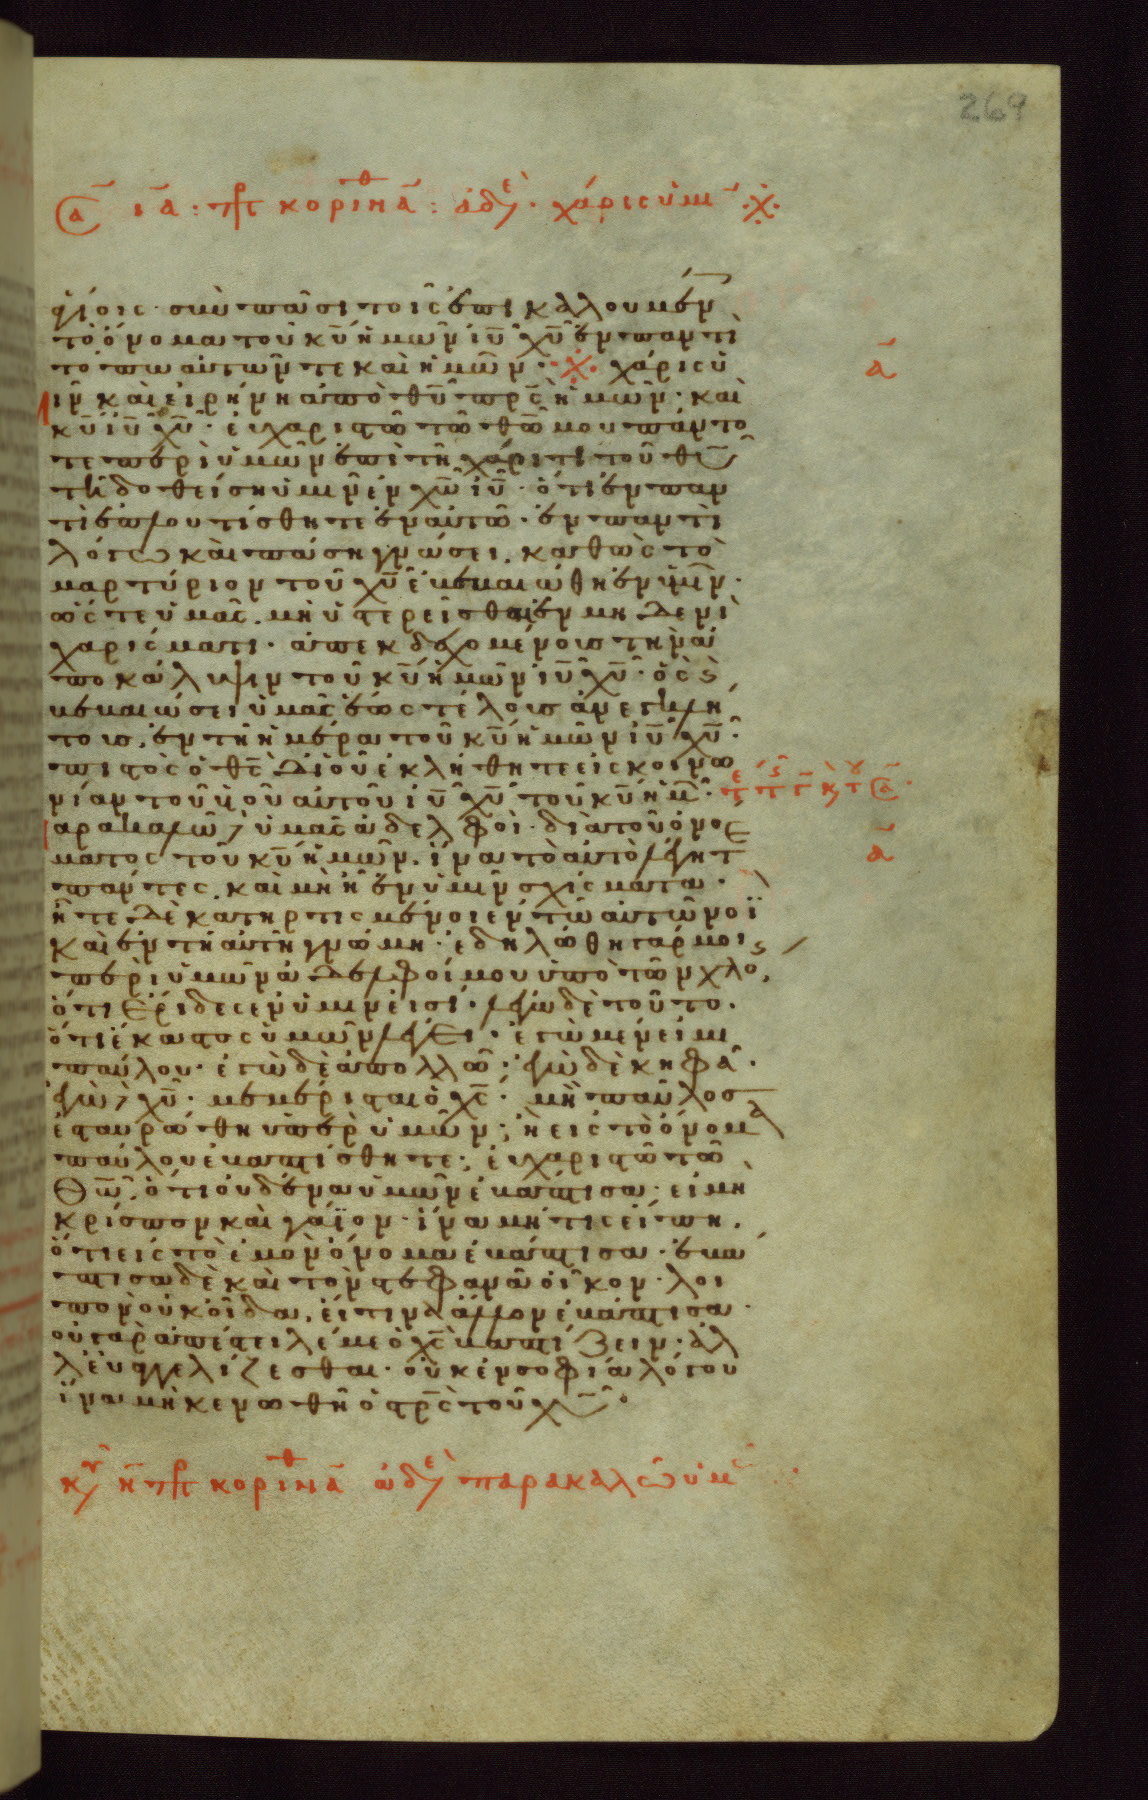 269
ιᾱ : πρ κορινᾱ : ἀδε · χάρις ὑμ
ἁγίοις · σὺν πᾶσι τοῖς ἐπικαλουμέν
τὸ ὄνομα τοῦ κ̅υ̅ ἡμῶν ι̅υ̅ χ̅υ̅ ἐν παντὶ
τόπω αὐτῶν τε καὶ ἡμῶν · χάρις ὑ
ᾱ
μῖν καὶ εἰρήνη ἀπὸ θ̅υ̅ π̅ρ̅ς̅ ἡμῶν · καὶ
κ̅υ̅ ι̅υ̅ χ̅υ̅ · εὐχαριστῶ τῶ θ̅ω̅ μου πάντο
τε περὶ ὑμῶν ἐπὶ τῆ χάριτι τοῦ θ̅υ̅
τῆ δοθείση ὑμῖν ἐν χ̅ω̅ ι̅υ̅ · ὅτι ἐν παν
τὶ ἐπλουτίσθητε ἐν αὐτῶ · ἐν παντὶ
λόγω καὶ πάση γνώσει · καθὼς τὸ
μαρτύριον τοῦ χ̅υ̅ ἐβεβαιώθη ἐν ὑμῖν ·
ὥστε ὑμᾶς μὴ ὑστερεῖσθαι ἐν μηδενὶ
χαρίσματι · ἀπεκδεχομένους τὴν ἀ
ποκάλυψιν τοῦ κ̅υ̅ ἡμῶν ι̅υ̅ χ̅υ̅ · ὃς
βεβαιώσει ὑμᾶς ἕως τέλους ἀνεγκλή
τους · ἐν τῆ ἡμέρα τοῦ κ̅υ̅ ἡμῶν ι̅υ̅ χ̅υ̅ ·
πιστὸς ὁ θ̅ς̅ δι' οὗ ἐκλήθητε εἰς κοινω
νίαν τοῦ υἱοῦ αὐτοῦ ι̅υ̅ χ̅υ̅ τοῦ κ̅υ̅ ἡμ ·
αρακαλῶ δὲ ὑμᾶς ἀδελφοὶ · διὰ τοῦ ὀνο
ματος τοῦ κ̅υ̅ ἡμῶν · ἵνα τὸ αὐτὸ λέγητ
ᾱ
πάντες · καὶ μὴ ἦ ἐν ὑμῖν σχίσματα ·
ἦτε δὲ κατηρτισμένοι ἐν τῶ αὐτῶ νοῒ
καὶ ἐν τῆ αὐτῆ γνώμη · ἐδηλώθη γάρ μοι
περὶ ὑμῶν ἀδελφοί μου ὑπὸ τῶν χλό
ὅτι ἔριδες ἐν ὑμῖν εἰσί · λέγω δὲ τοῦτο ·
ὅτι ἕκαστος ὑμῶν λέγει · ἐγὼ μέν εἰμι
παύλου · ἐγὼ δὲ ἀπολλῶ · ἐγὼ δὲ κηφᾶ ·
ἐγὼ δὲ χ̅υ̅ · μεμέρισται ὁ χ̅ς̅ · μὴ παῦλος
ἐσταυρώθη ὑπὲρ ὑμῶν ; ἢ εἰς τὸ ὄνομα
παύλου ἐβαπτίσθητε ; εὐχαριστῶ τῶ
θ̅ω̅ · ὅτι οὐδένα ὑμῶν ἐβάπτισα · εἰ μὴ
κρίσπον καὶ γάϊον · ἵνα μή τις εἴπη ·
ὅτι εἰς τὸ ἐμὸν ὄνομα ἐβάπτισα · ἐβά
πτισα δὲ καὶ τὸν στεφανᾶ οἶκον · λοι
πὸν οὐκ οἶδα · εἴ τινα ἄλλον ἐβάπτισα ·
οὐ γὰρ ἀπέστειλέ με ὁ χ̅ς̅ βαπτίζειν · ἀλ
λ' εὐαγγελίζεσθαι · οὐκ ἐν σοφία λόγου
ἵνα μὴ κενωθῆ ὁ σ̅τ̅ρ̅ς̅ τοῦ χ̅υ̅ ·
κυ η πρ κορινᾱ ἀδε παρακαλῶ ὑμ